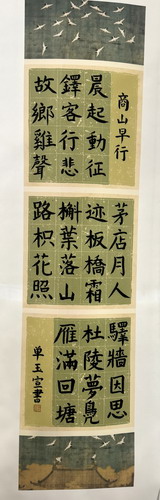 商山早行
晨起動征
鐸客行悲
故鄉雞聲
茅店月人
迹板橋霜
槲葉落山
路枳花照
驛牆因思
杜陵夢鳧
雁滿回塘
单玉宣書